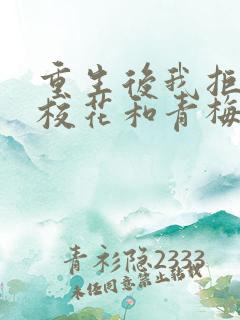 重生後我拒
校花和青梅
青衫隐2333
未经同意禁止转载